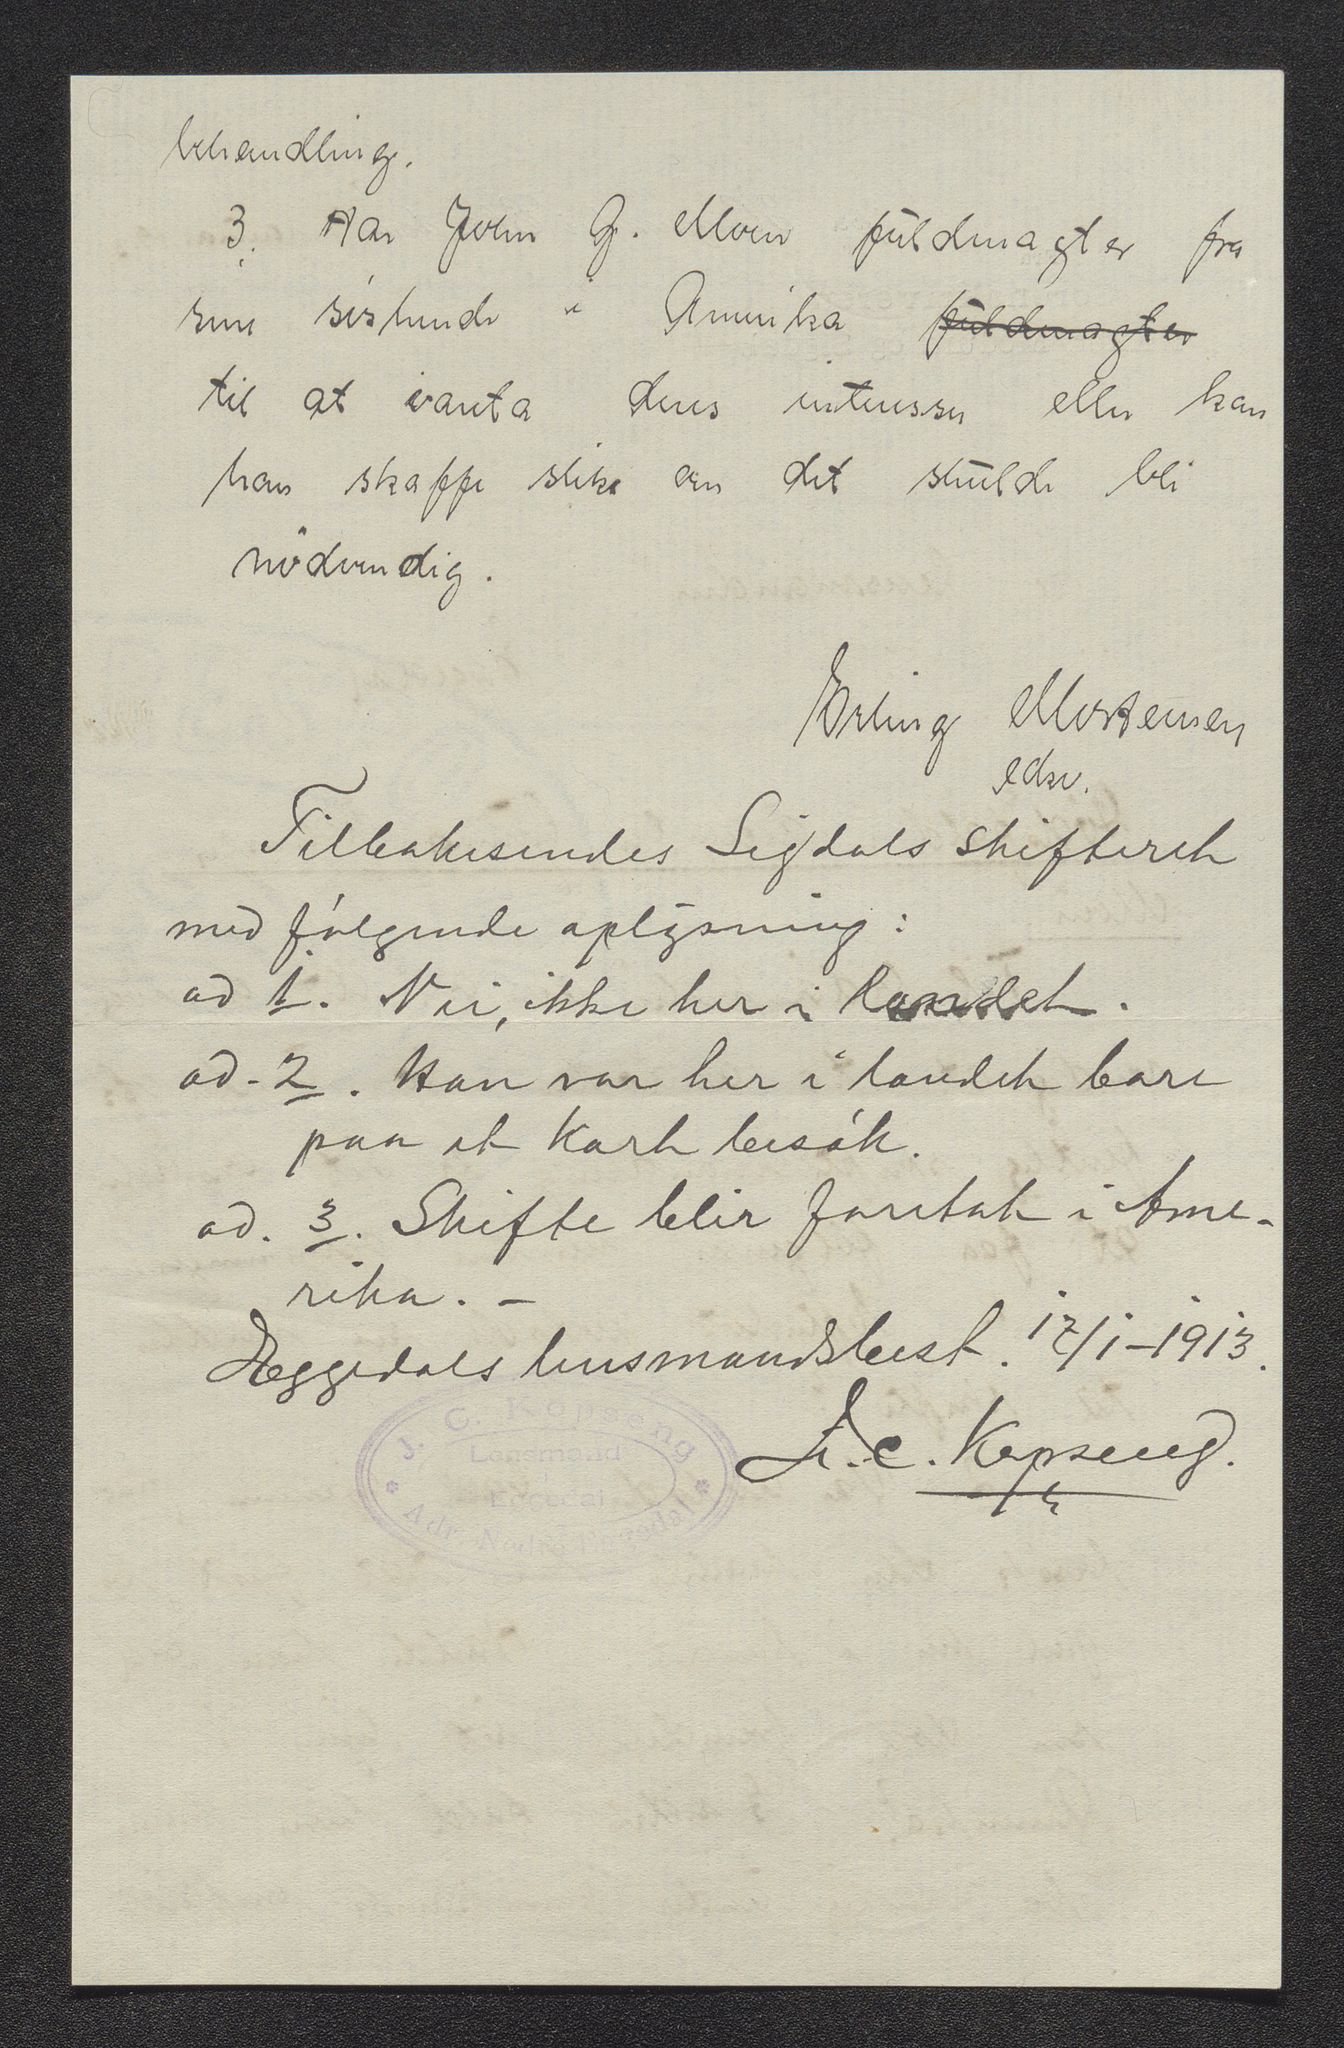 behandling.
3. Har John G. Moen fuldmagter fra
sine søskende i Amerika fuldmagter
til at vareta deres interesser eller kan
han skaffe slike om det skulde bli
nødvendig.
Erling Mortensen
edsv.
Tilbakesendes Sigdals skifteret
med følgende oplysning:
ad 1. Nei, ikke her i landet.
ad. 2. Han var her i landet bare
paa et kort besøk.
ad. 3. Skifte blir foretat i Ame-
rika. –
Eggedals lensmandsbest. 17/1–1913.
J. C. Kopseng.
J. C. Kopseng
Lensmand
i
Eggedal
Adr. Nedre Eggedal